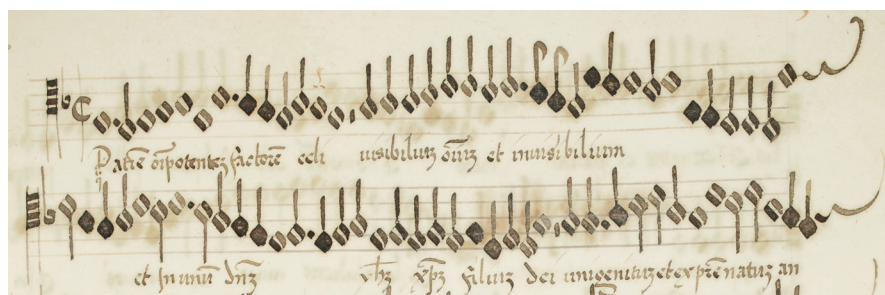 Patrē oīpotentez factorē celi uisibiliuz oīuz et inuisibilium
et in unuz dnz ihz xpz filiuz dei unigenituz et ex prē natuz an